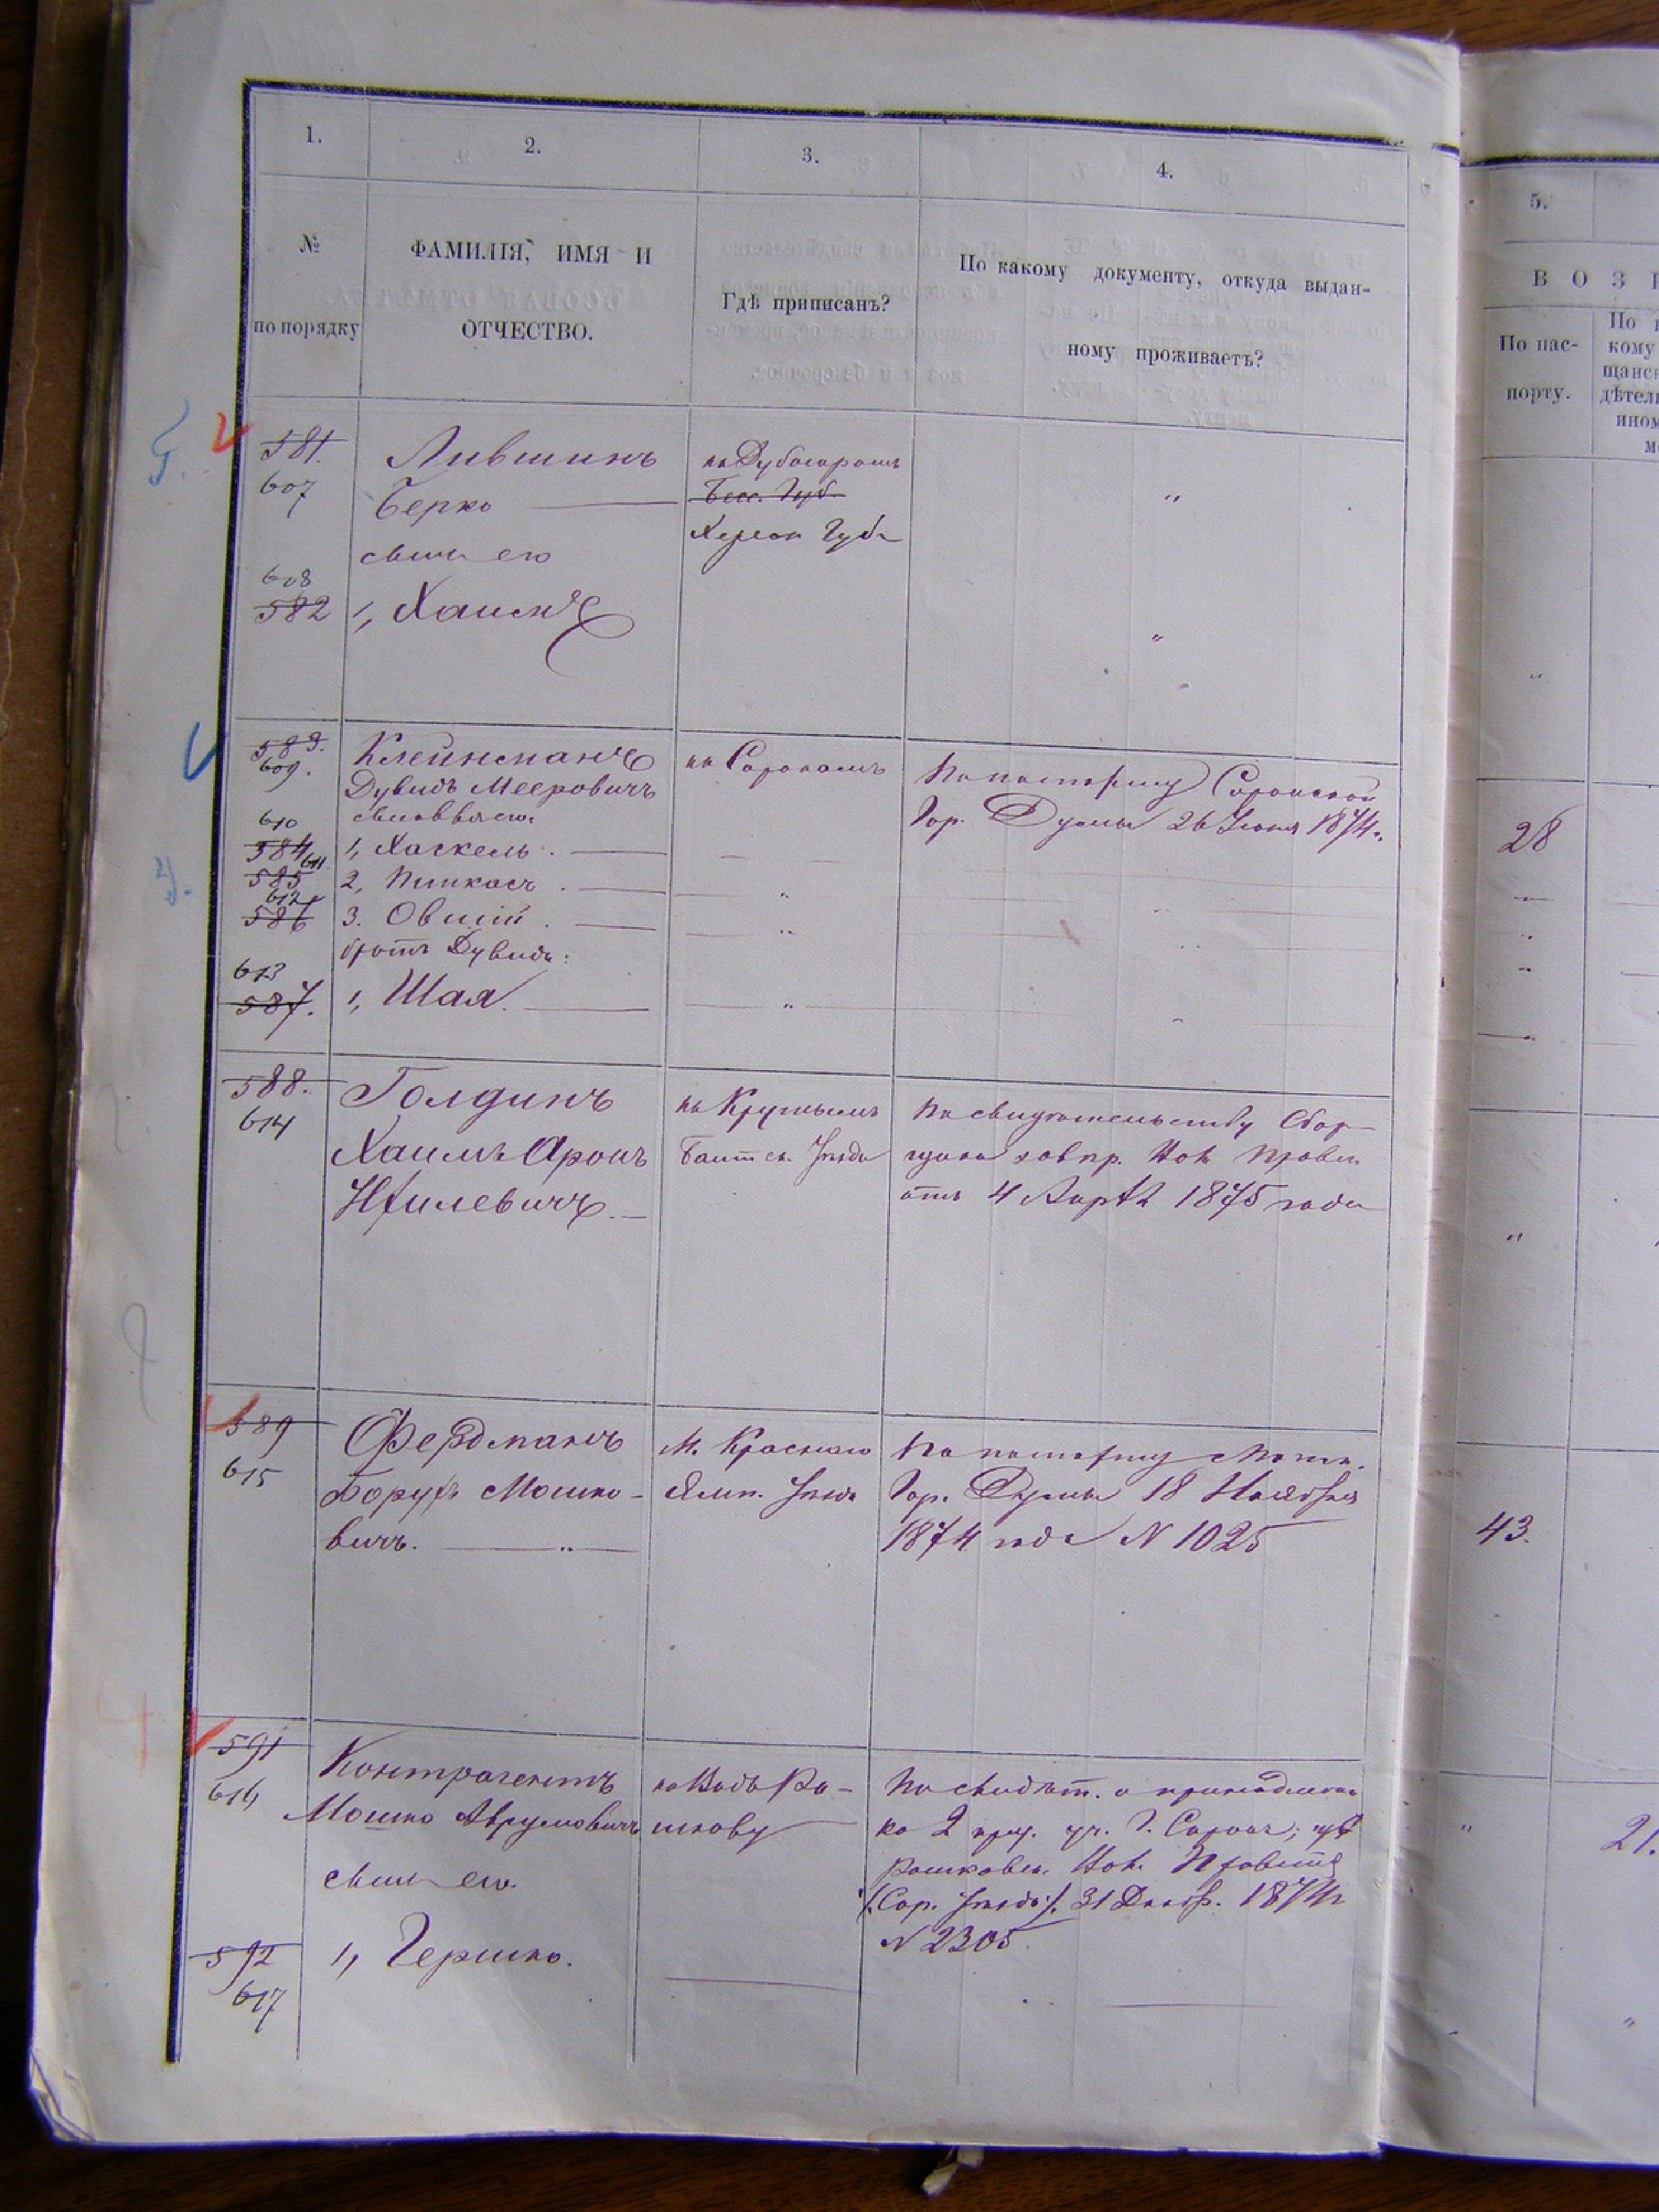 1.
2.
3.
4.
5.
№
по порядку
ФАМИЛІЯ, ИМЯ И
ОТЧЕСТВО.
Гдѣ приписанъ?
По какому документу, откуда выдан-
ному проживаетъ?
ВОЗ
По пас-
порту.
По
кому
щанс
дѣтел
ином
581.
607
Лившинъ
Берко
сынъ его
къ Дубосарамъ
Бесс. Губ
Херсон Губ
"
608
582
1, Хаимъ
"
583.
609.
Клейнманъ
Дувидъ Мееровичъ
сыновья его
къ Сорокамъ
По паспорту Сорокской
Гор. Думы 26 Іюня 1874 г.
28
610
584
1, Хаскель.
611
585
2, Пинкасъ.
612
586
3. Овшій.
братъ Дувида:
613
587.
1, Шая.
588.
614
Голдинъ
Хаимъ Аронъ
Ихилевичъ
къ Крутымъ
Балтск. Уѣзда
По свидѣтельству
отъ 4 Марта 1875 года
"
589
615
Фердманъ
Борухъ Мошко-
вичъ.
М. Красного
Ямп. Уѣзда
По паспорту
Гор. Думы 18 Ноября
1874 года N 1025
43.
591
616
Контрагентъ
Мошко Аврумовичъ
сынъ его.
къ Вадъ Ра-
шкову
По свидѣт. о
ко 2 уч. Г. Сорокъ;
Рашковск.
/:Сор. Уѣзда:/. 31 Декаб. 1874 г
N 2305.
"
21.
592
617
1, Гершко.